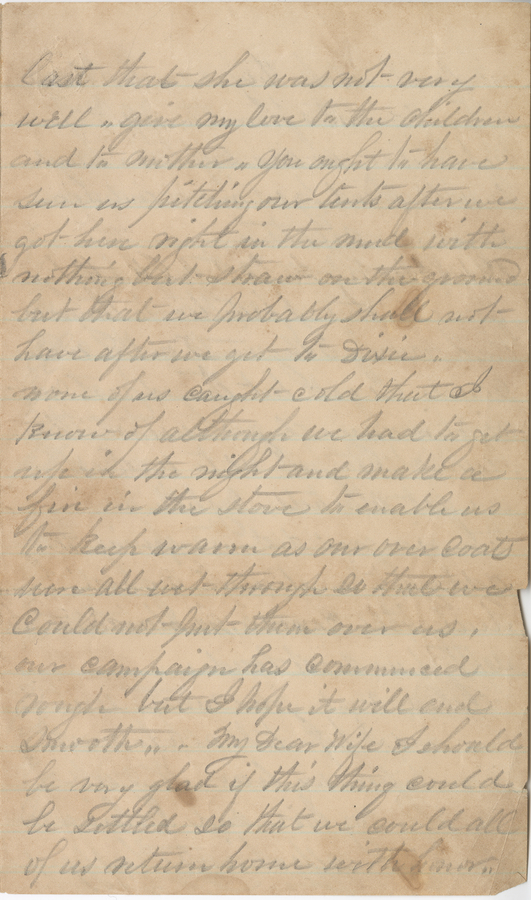 last that she was not very
well " give my love to the children
and to mother " you ought to have
seen us pitching our tents after we
got here right in the mud with
nothing but straw on the ground
but that we probably shall not
have after we get to Dixie.
none of us caught cold that I
know of although we had to get
up in the night and make a
fire in the stove to enable us
to keep warm as our over coats
were all wet through so that we
could not put them over us.
our campaign has commenced
rough but I hope it will end
smooth ". My Dear Wife I should
be very glad if this thing could
be settled so that we could all
of us return home with honor "